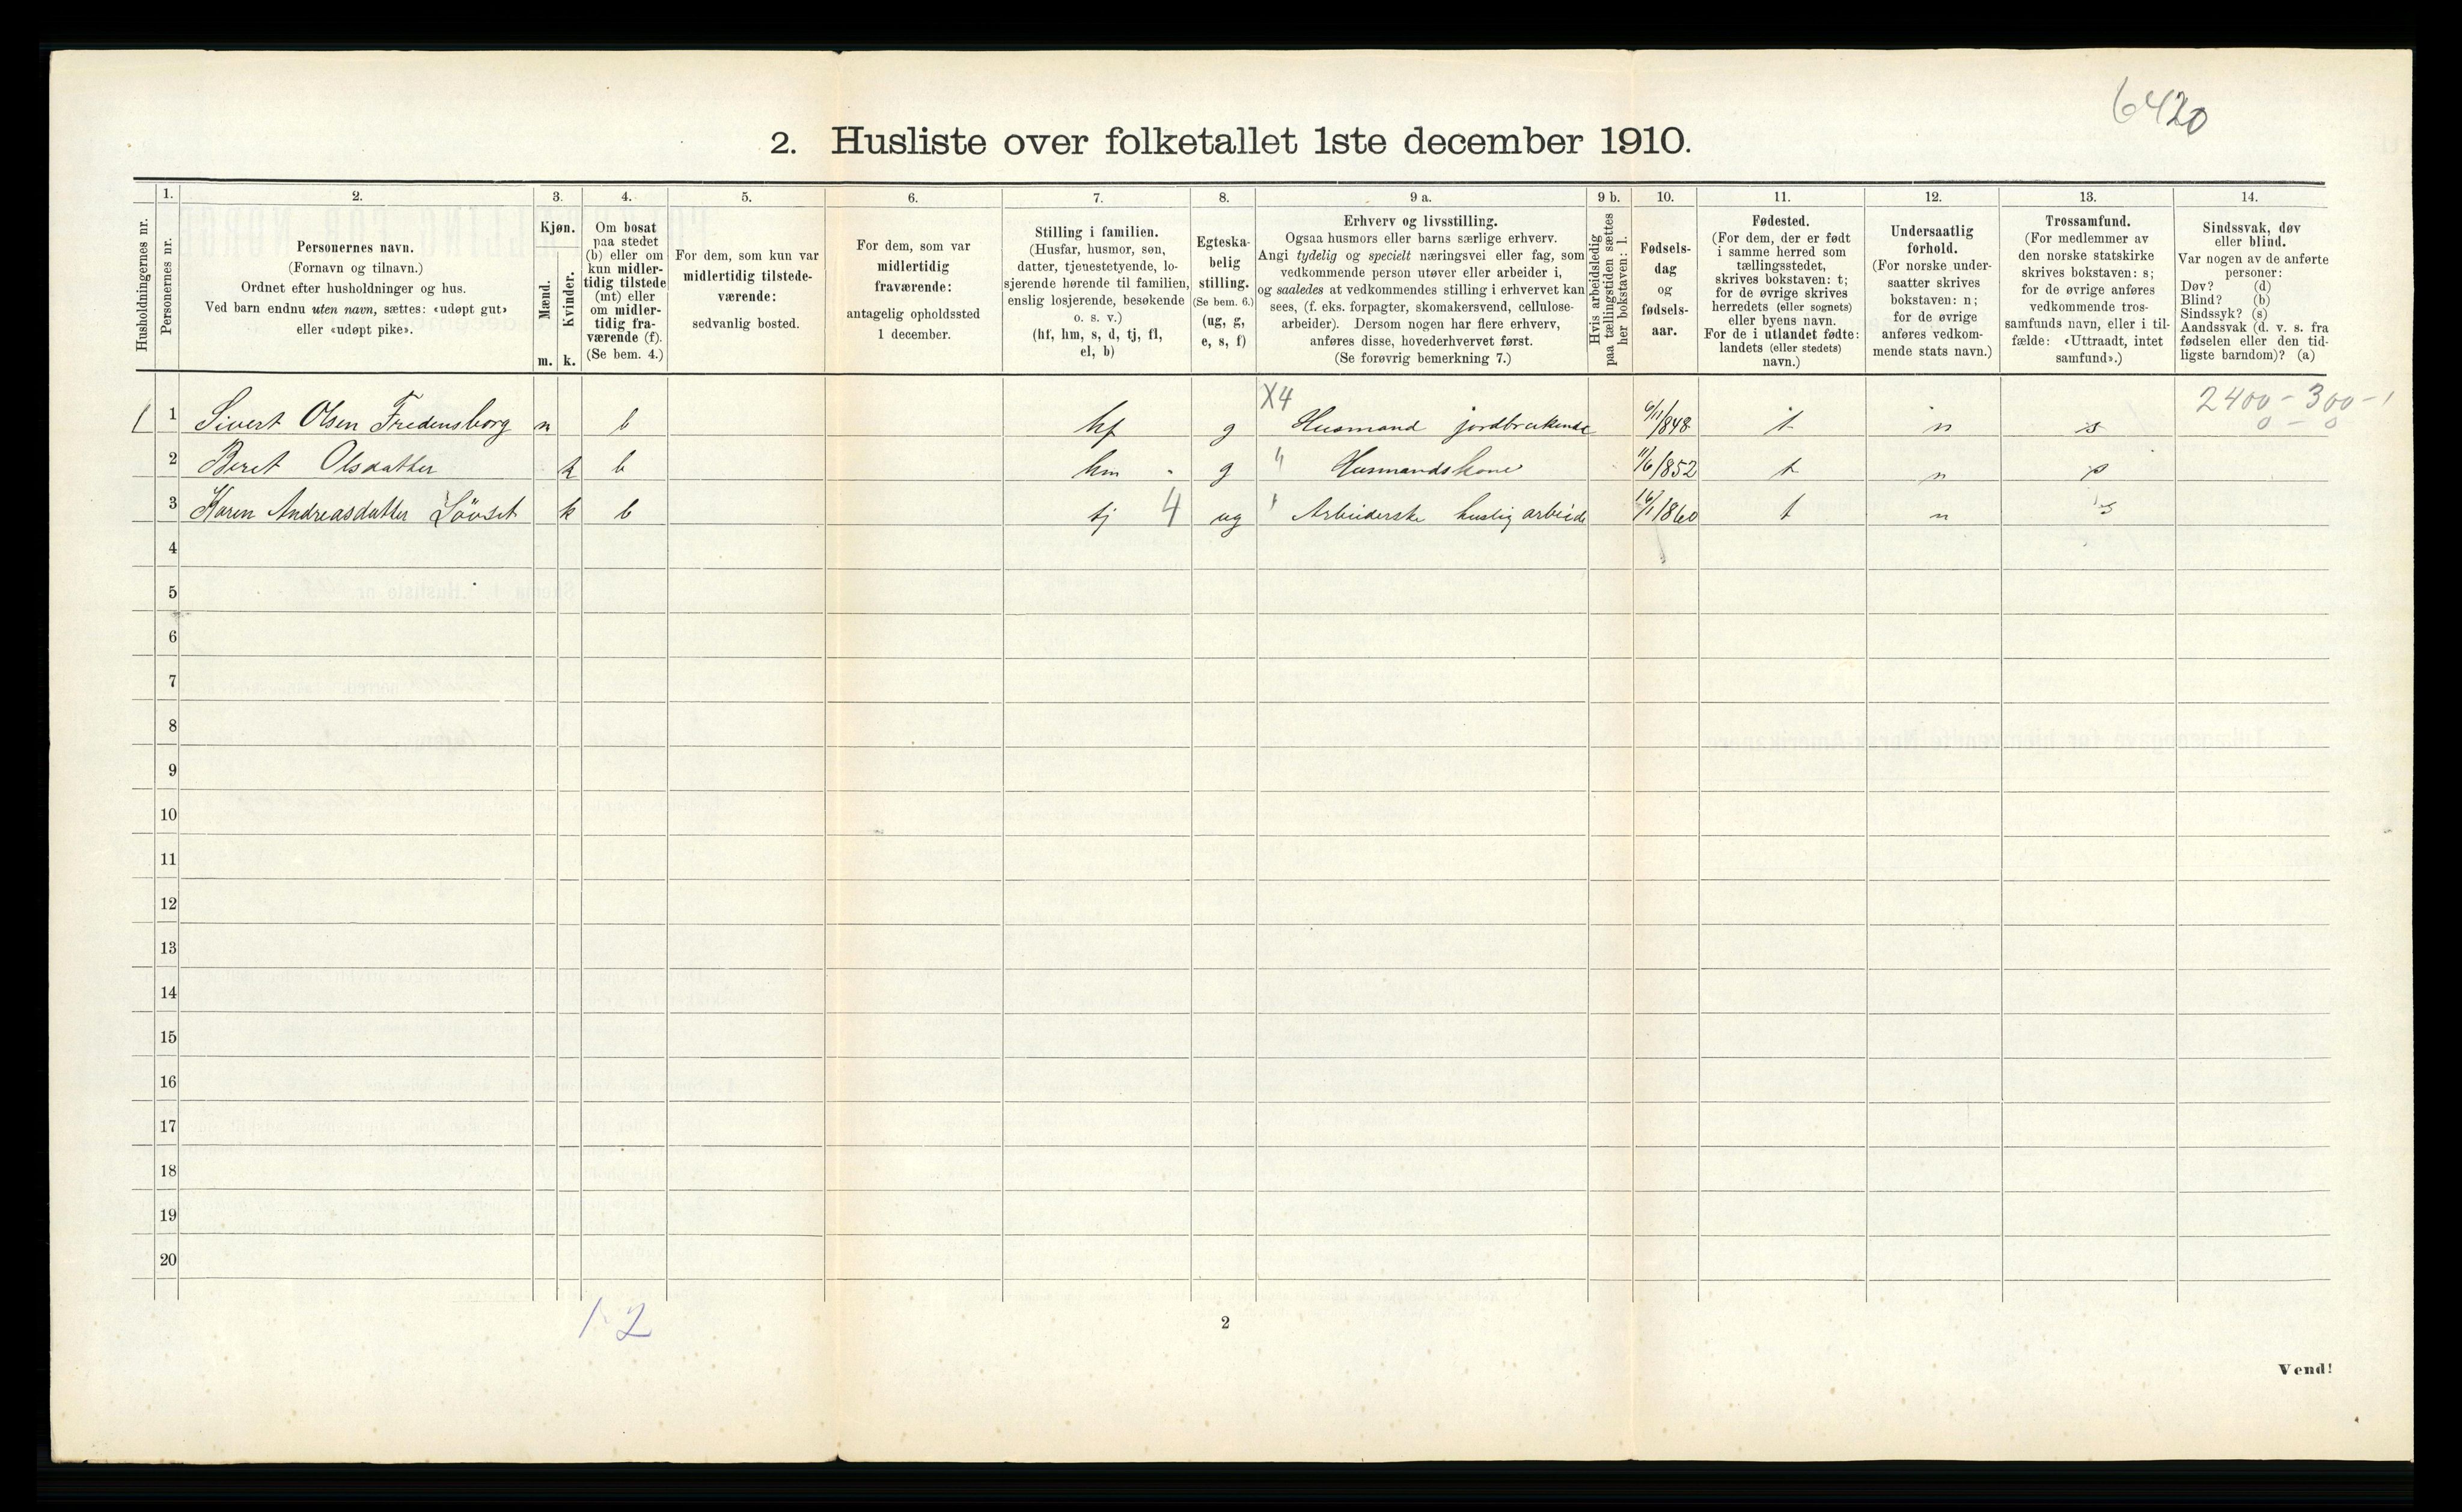 6420
2. Husliste over folketallet 1ste december 1910.
Husholdningernes nr.
1.
Personernes nr.
2.
Personernes navn.
(Fornavn og tilnavn.)
Ordnet efter husholdninger og hus.
Ved barn endnu uten navn, sættes: «udøpt gut»
eller «udøpt pike».
3.
Kjøn.
Mænd.
Kvinder.
m. k.
4.
Om bosat
paa stedet
(b) eller om
kun midler-
tidig tilstede
(mt) eller
om midler-
tidig fra-
værende (f).
(Se bem. 4.)
5.
For dem, som kun var
midlertidig tilstede-
værende:
sedvanlig bosted.
6.
For dem, som var
midlertidig
fraværende:
antagelig opholdssted
1 december.
7.
Stilling i familien.
(Husfar, husmor, søn,
datter, tjenestetyende, lo-
sjerende hørende til familien,
enslig losjerende, besøkende
o. s. v.)
(hf, hm, s, d, tj, fl,
el, b)
8.
Egteska-
belig
stilling.
(Se bem. 6.)
(ug, g,
e, s, f)
9 a.
Erhverv og livsstilling.
Ogsaa husmors eller barns særlige erhverv.
Angi tydelig og specielt næringsvei eller fag, som
vedkommende person utøver eller arbeider i,
og saaledes at vedkommendes stilling i erhvervet kan
sees, (f. eks. forpagter, skomakersvend, cellulose-
arbeider). Dersom nogen har flere erhverv,
anføres disse, hovederhvervet først.
(Se forøvrig bemerkning 7.)
9 b.
Hvis arbeidsledig
paa tællingstiden sættes
her bokstaven: l.
10.
Fødsels-
dag
og
fødsels-
aar.
11.
Fødested.
(For dem, der er født
i samme herred som
tællingsstedet,
skrives bokstaven: t;
for de øvrige skrives
herredets (eller sognets)
eller byens navn.
For de i utlandet fødte:
landets (eller stedets)
navn.)
12.
Undersaatlig
forhold.
(For norske under-
saatter skrives
bokstaven: n;
for de øvrige
anføres vedkom-
mende stats navn.)
13.
Trossamfund.
(For medlemmer av
den norske statskirke
skrives bokstaven: s;
for de øvrige anføres
vedkommende tros-
samfunds navn, eller i til-
fælde: «Uttraadt, intet
samfund».)
14.
Sindssvak, døv
eller blind.
Var nogen av de anførte
personer:
Døv? (d)
Blind? (b)
Sindssyk? (s)
Aandssvak (d. v. s. fra
fødselen eller den tid-
ligste barndom)? (a)
X4 2400 - 300 - 1
0 - 0
1 1 Sivert Olsen Fredensborg m b hf g Husmand jordbrukende 6/11/848 t n s
2 Beret Olsdatter k b hm - g " Husmandskone 11/6/852 t n s
3 Karen Andreasdatter Lövset k b tj 4 ug " Arbeiderske huslig arbeide 16/1/860 t n s
4
5
6
7
8
9
10
11
12
13
14
15
16
17
18
19
20
1-2
2
Vend!